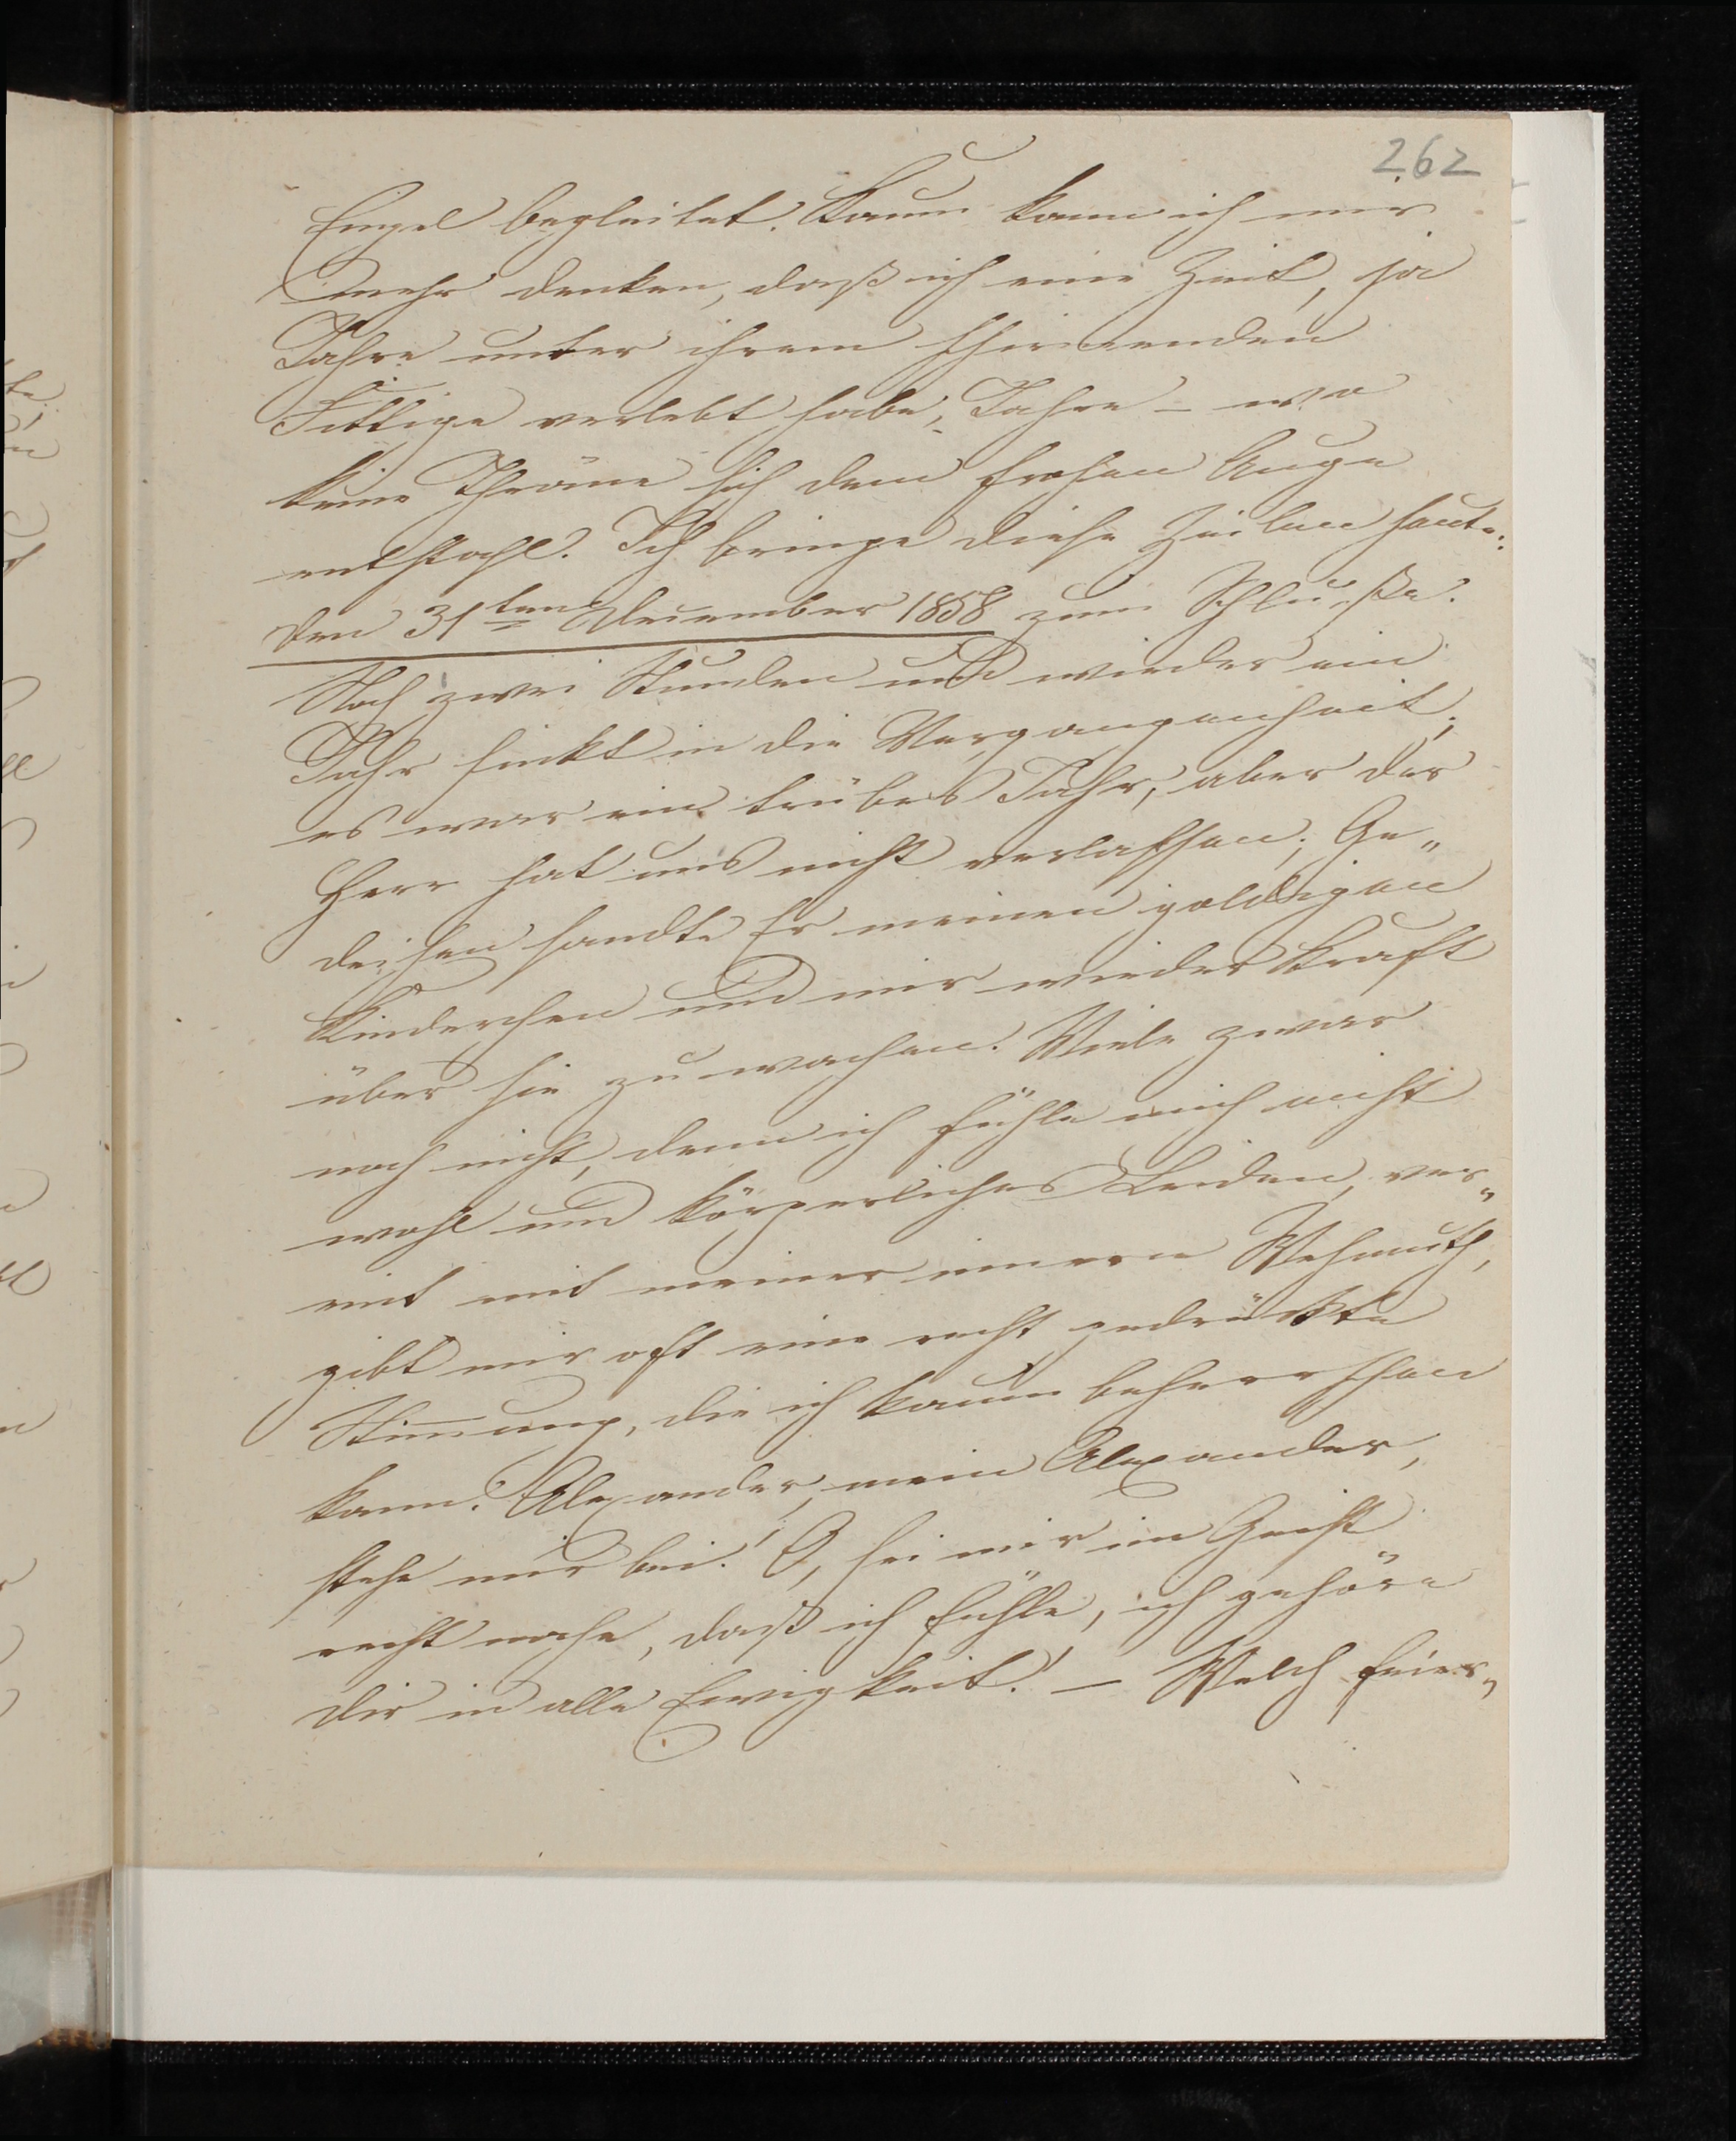 262
Engel begleitet. Kaum kann ich mir
mehr denken, daß ich eine Zeit, ja
Jahre unter ihrem schirmenden
Fittige verlebt habe; Jahre – wo
keine Thräne sich dem frohen Auge
entstahl. Ich bringe diese Zeilen heute:
den 31ten December 1858 zum Schluße.
Noch zwei Stunden und wieder ein
Jahr sinkt in die Vergangenheit;
es war ein trübes Jahr, aber der
Herr hat uns nicht verlassen; Ge„
deihen sandte Er meinen goldigen
Kinderchen und mir wieder Kraft
über sie zu wachen. Viele zwar
noch nicht, denn ich fühle mich nicht
wohl und körperliches Leiden, ver„
eint mit meiner innern Wehmuth,
gibt mir oft eine recht gedrückte
Stimmung, die ich kaum beherrschen
kann. Alexander, mein Alexander,
stehe mir bei! O, sei mir im Geist
recht nahe, daß ich fühle, ich gehöre
dir in alle Ewigkeit! – Welch feier„